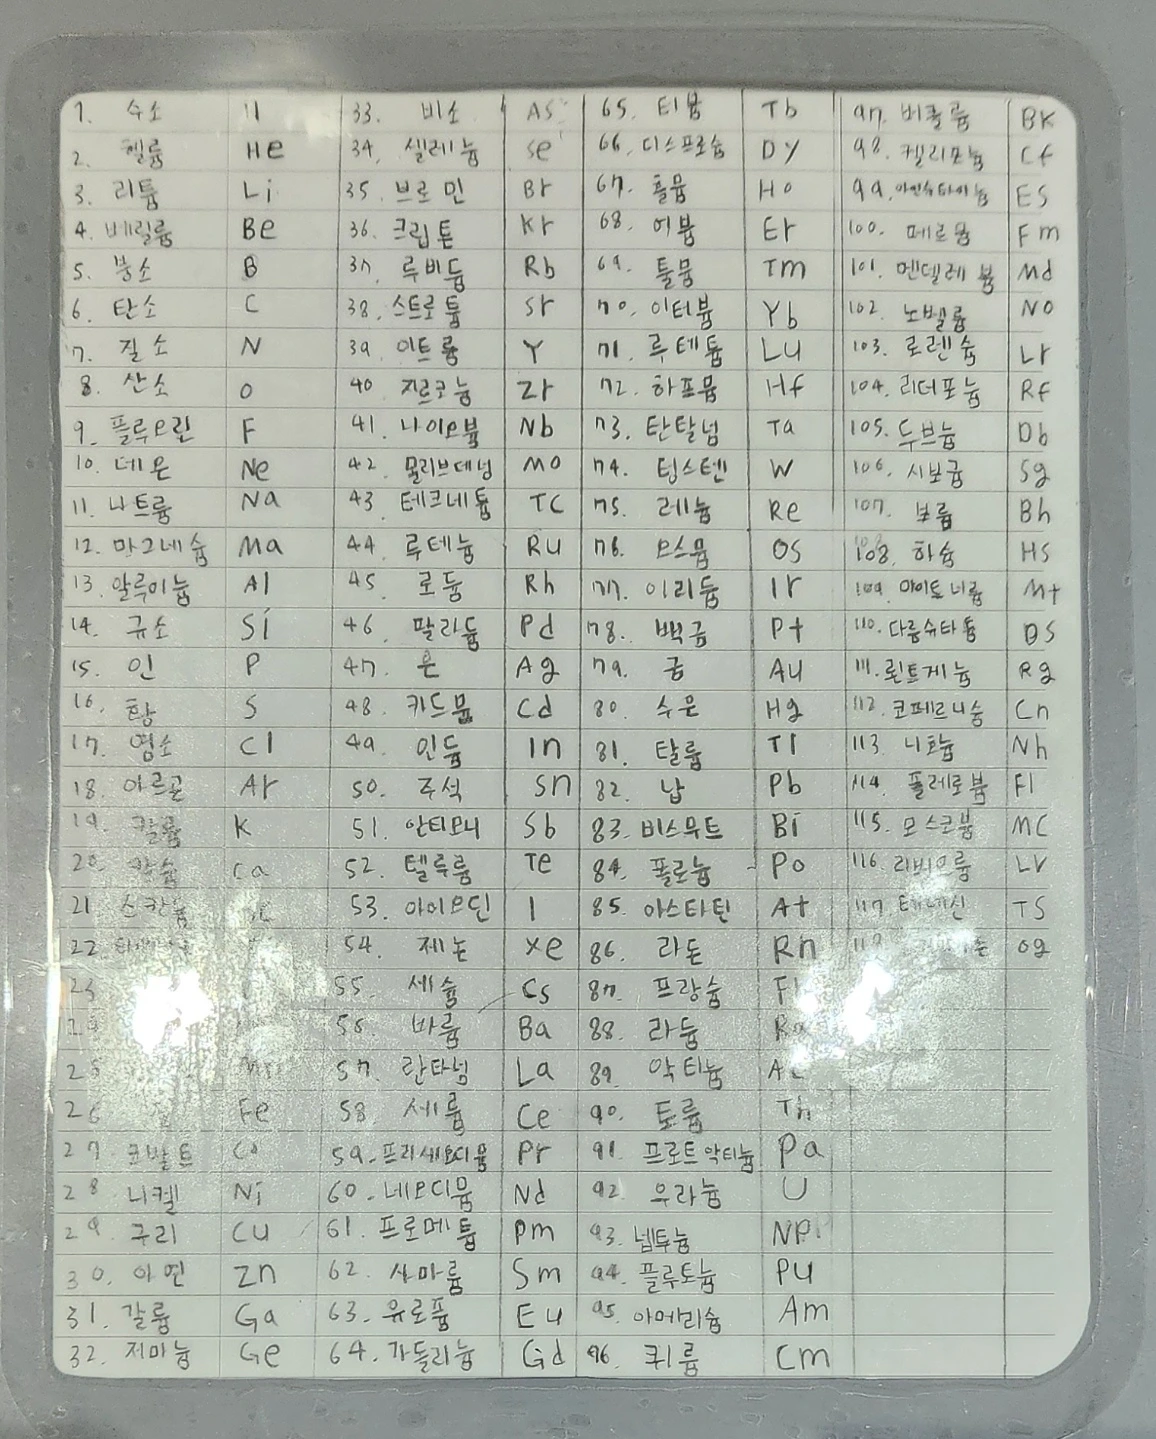 1. 수소 H
2. 헬륨 He
3. 리튬 Li
4. 베릴륨 Be
5. 붕소 B
6. 탄소 C
7. 질소 N
8. 산소 O
9. 플루오린 F
10. 네온 Ne
11. 나트륨 Na
12. 마그네슘 Ma
13. 알루미늄 Al
14. 규소 Si
15. 인 P
16. 황 S
17. 염소 Cl
18. 아르곤 Ar
19. 칼륨 K
20 칼슘 Ca
21 스칸듐
22
23
24
25
26 Fe
27 코발트 Co
28 니켈 Ni
29. 구리 Cu
30. 아연 Zn
31. 갈륨 Ga
32. 저마늄 Ge
33. 비소 As
34. 셀레늄 Se
35 브로민 Br
36. 크립톤 Kr
37. 루비듐 Rb
38. 스트로튬 Sr
39. 이트륨 Y
40 지르코늄 Zr
41. 나이오븀 Nb
42. 몰리브데넘 Mo
43. 테크네튬 Tc
44. 루테늄 Ru
45. 로듐 Rh
46. 팔라듐 Pd
47. 은 Ag
48. 카드뮴 Cd
49. 인듐 In
50. 주석 Sn
51. 안티모니 Sb
52. 텔루륨 Te
53. 아이오딘 I
54. 제논 Xe
55. 세슘 Cs
56. 바륨 Ba
57. 란타넘 La
58. 세륨 Ce
59. 프리세오디뮴 Pr
60. 네오디뮴 Nd
61. 프로메튬 Pm
62. 사마륨 Sm
63. 유로퓸 Eu
64. 가돌리늄 Gd
65. 터븀 Tb
66. 디스프로슘 Dy
67. 홀뮴 Ho
68. 어븀 Er
69. 툴뮴 Tm
70. 이터븀 Yb
71. 루테튬 Lu
72. 하프뮴 Hf
73. 탄탈넘 Ta
74. 텅스텐 W
75. 레늄 Re
76. 오스뮴 Os
77. 이리듐 Ir
78. 백금 Pt
79. 금 Au
80. 수은 Hg
81. 탈륨 Tl
82. 납 Pb
83. 비스무트 Bi
84. 폴로늄 Po
85. 아스타틴 At
86. 라돈 Rn
87. 프랑슘
88. 라듐 Ra
89. 악티늄
90. 토륨 Th
91. 프로트악티늄 Pa
92. 우라늄 U
93. 넵투늄 Np
94. 플루토늄 Pu
95. 아메리슘 Am
96. 퀴륨 Cm
97. 버클륨 Bk
98. 캘리포늄 Cf
99. 아인슈타이늄 Es
100. 페르뮴 Fm
101. 멘델레븀 Md
102. 노벨륨 No
103. 로렌슘 Lr
104. 러더포늄 Rf
105. 두브늄 Db
106. 시보귬 Sg
107. 보륨 Bh
108. 하슘 Hs
109. 마이트너륨 Mt
110. 다름슈타튬 Ds
111. 뢴트게늄 Rg
112. 코페르니슘 Cn
113. 니호늄 Nh
114. 플레로븀 Fl
115. 모스코븀 Mc
116. 리버모륨 Lv
117. 테네신 Ts
Og